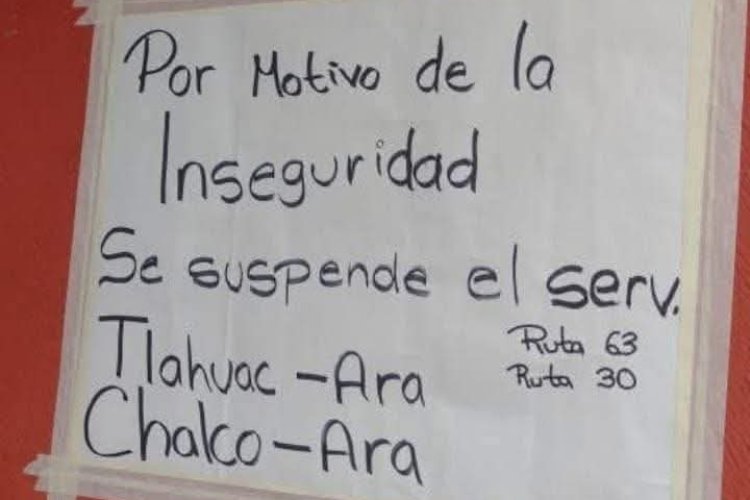 Por Motivo de la
Inseguridad
Se suspende el serv.
Ruta 63
Ruta 30
Tlahuac - Ara
Chalco - Ara